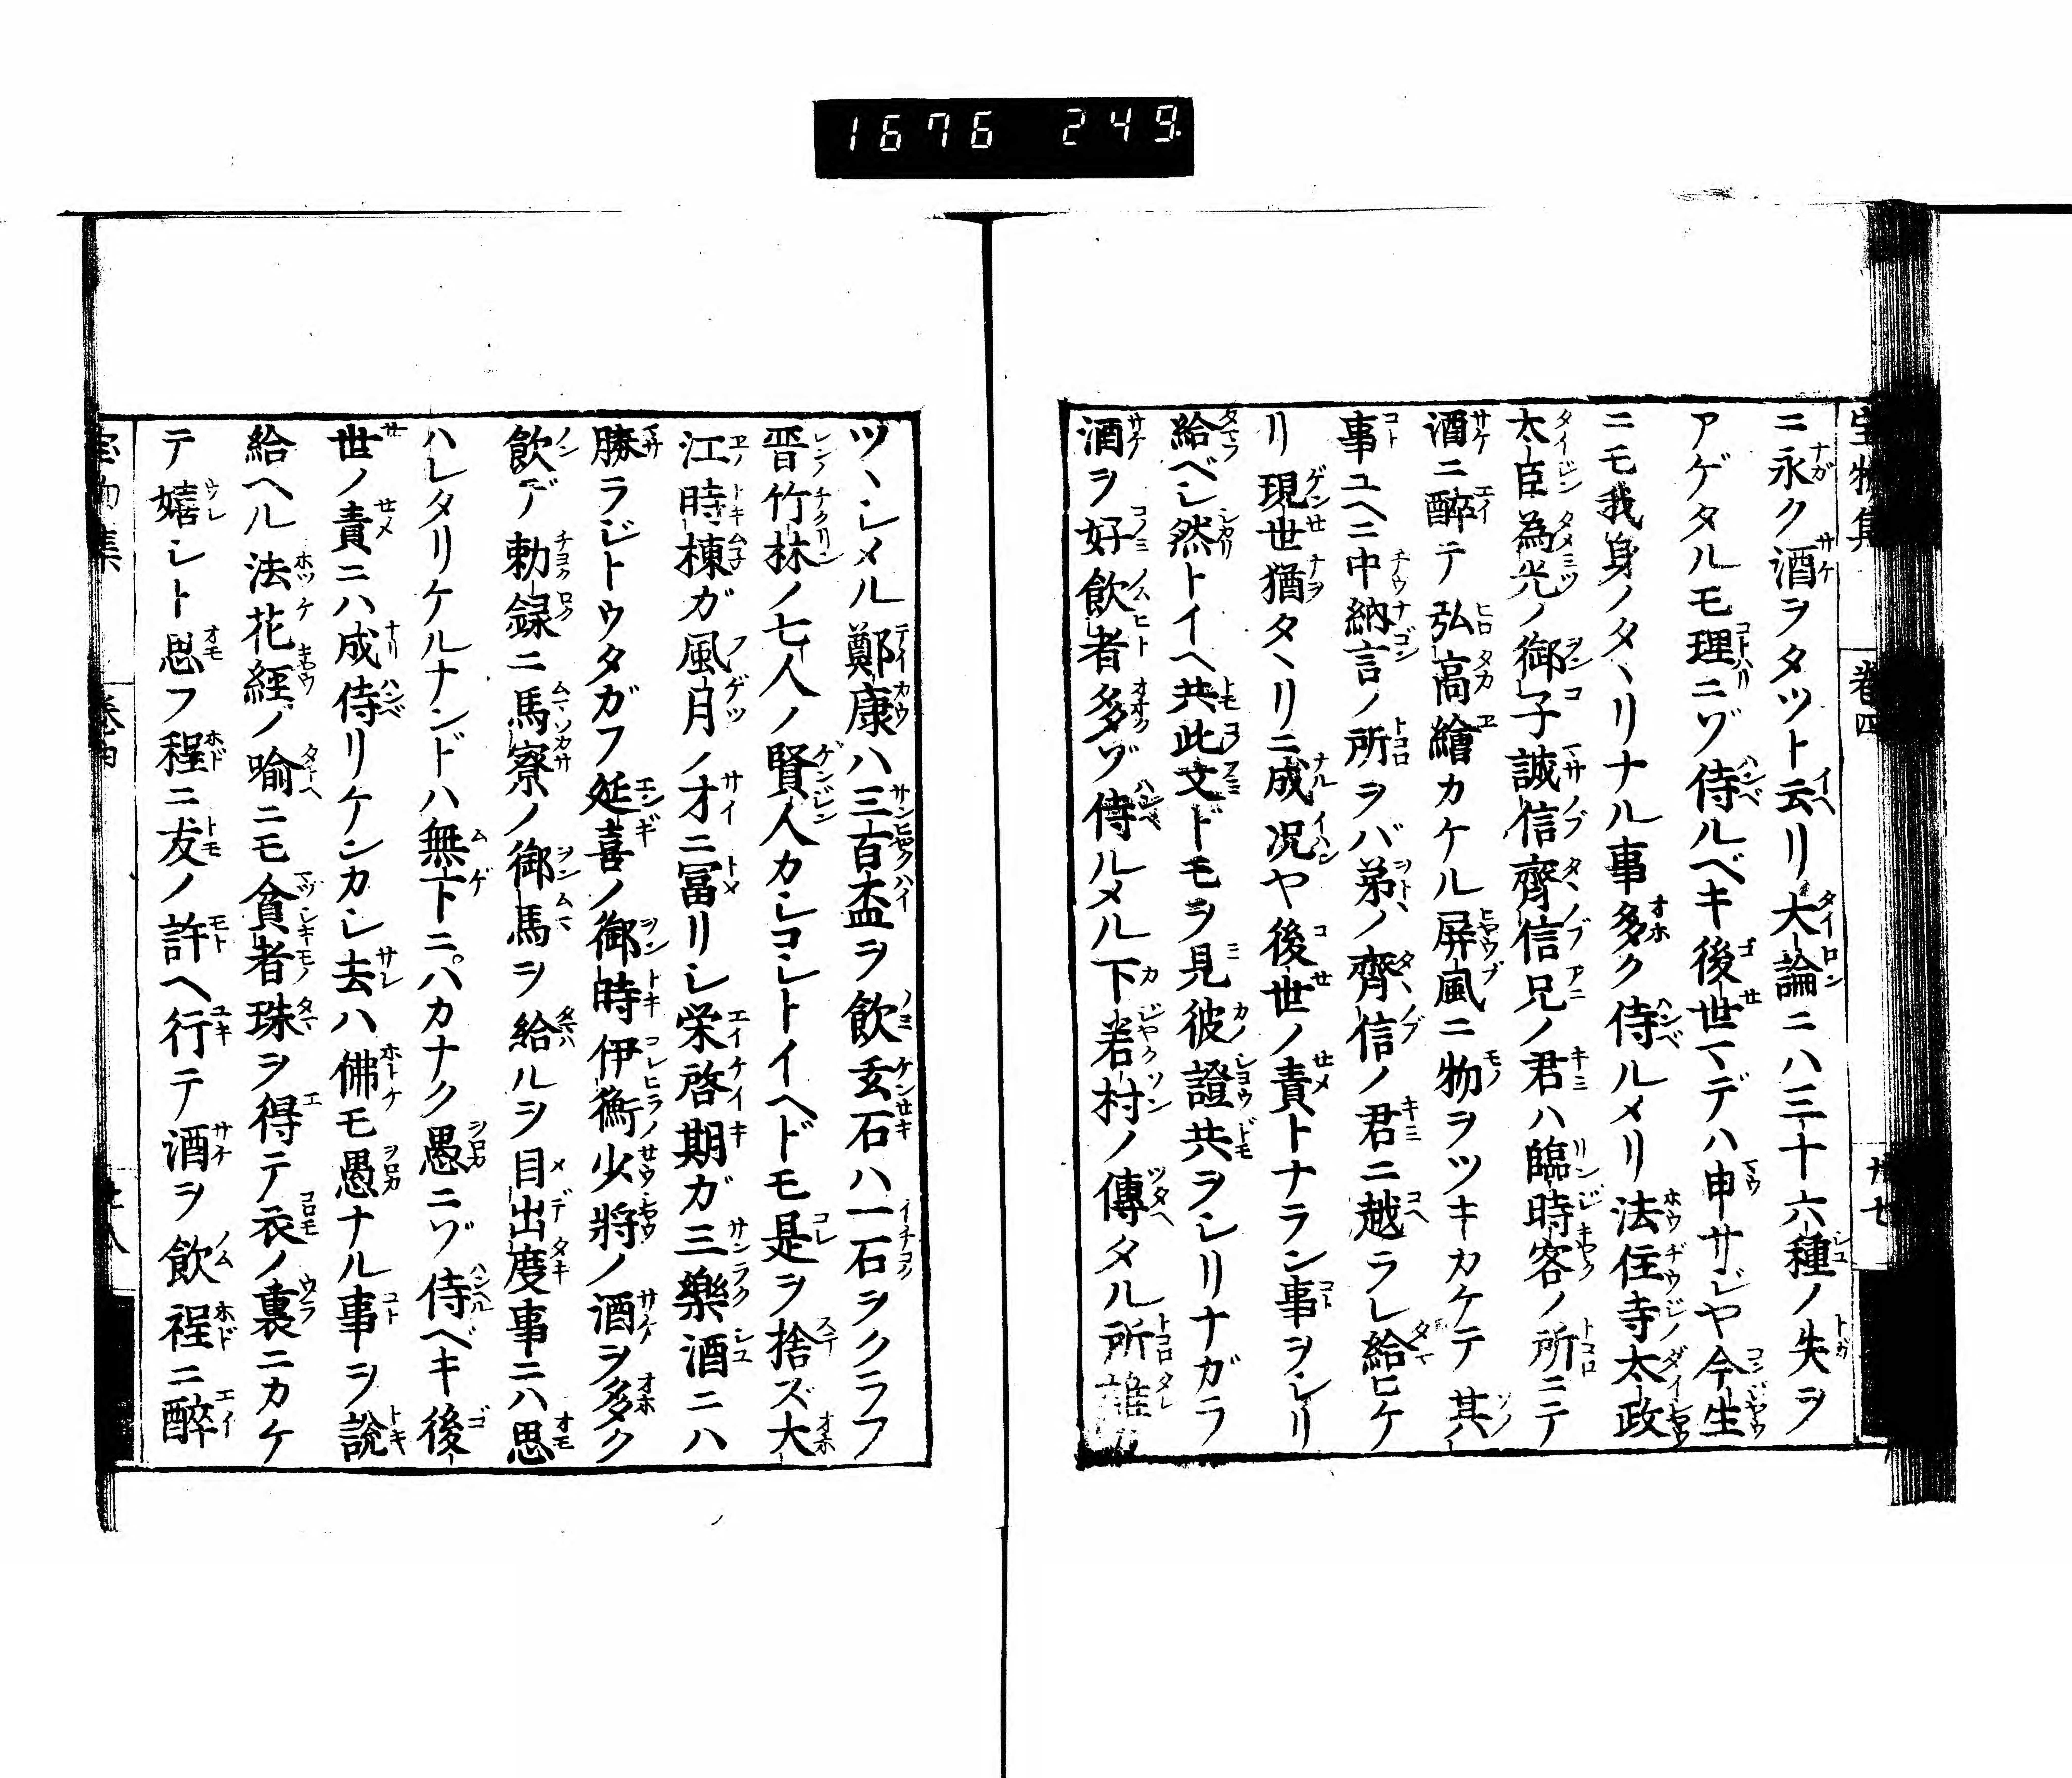 1676 249.
ニ永ク酒ヲタツト云リ大論ニハ三十六種ノ失ヲ
アゲタルモ理ニゾ侍ルベキ後世マデハ申サジヤ今生
ニモ我身ノタヽリナル事多ク侍ルメリ法住寺太政
大臣為光ノ御子誠信齊信兄ノ君ハ臨時客ノ所ニテ
酒ニ醉テ弘高繪カケル屏風ニ物ヲツキカケテ其
事ユヘニ中納言ノ所ヲバ弟ノ齊信ノ君ニ越ラレ給ヒケ
リ現世猶タヽリニ成況ヤ後世ノ責トナラン事ヲシリ
給ベシ然トイヘ共此文ドモヲ見彼證共ヲシリナガラ
酒ヲ好飲者多ゾ侍ルメル下若村ノ傳タル所誰
ツヽシメル鄭康ハ三百盃ヲ飲玄石ハ一石ヲクラフ
晋竹林ノ七人ノ賢人カシコシトイヘドモ是ヲ捨ズ大
江時棟ガ風月ノ才ニ冨リシ栄啓期ガ三樂酒ニハ
勝ラジトウタガフ延喜ノ御時伊衡少將ノ酒ヲ多ク
飲デ勅録ニ馬寮ノ御馬ヲ給ルヲ目出度事ニハ思
ハレタリケルナンドハ無下ニハカナク愚ニゾ侍ベキ後
世ノ責ニハ成侍リケンカシ去ハ佛モ愚ナル事ヲ説
給ヘル法花經ノ喻ニモ貧者珠ヲ得テ衣ノ裏ニカケ
テ嬉シト思フ程ニ友ノ許ヘ行テ酒ヲ飲程ニ醉